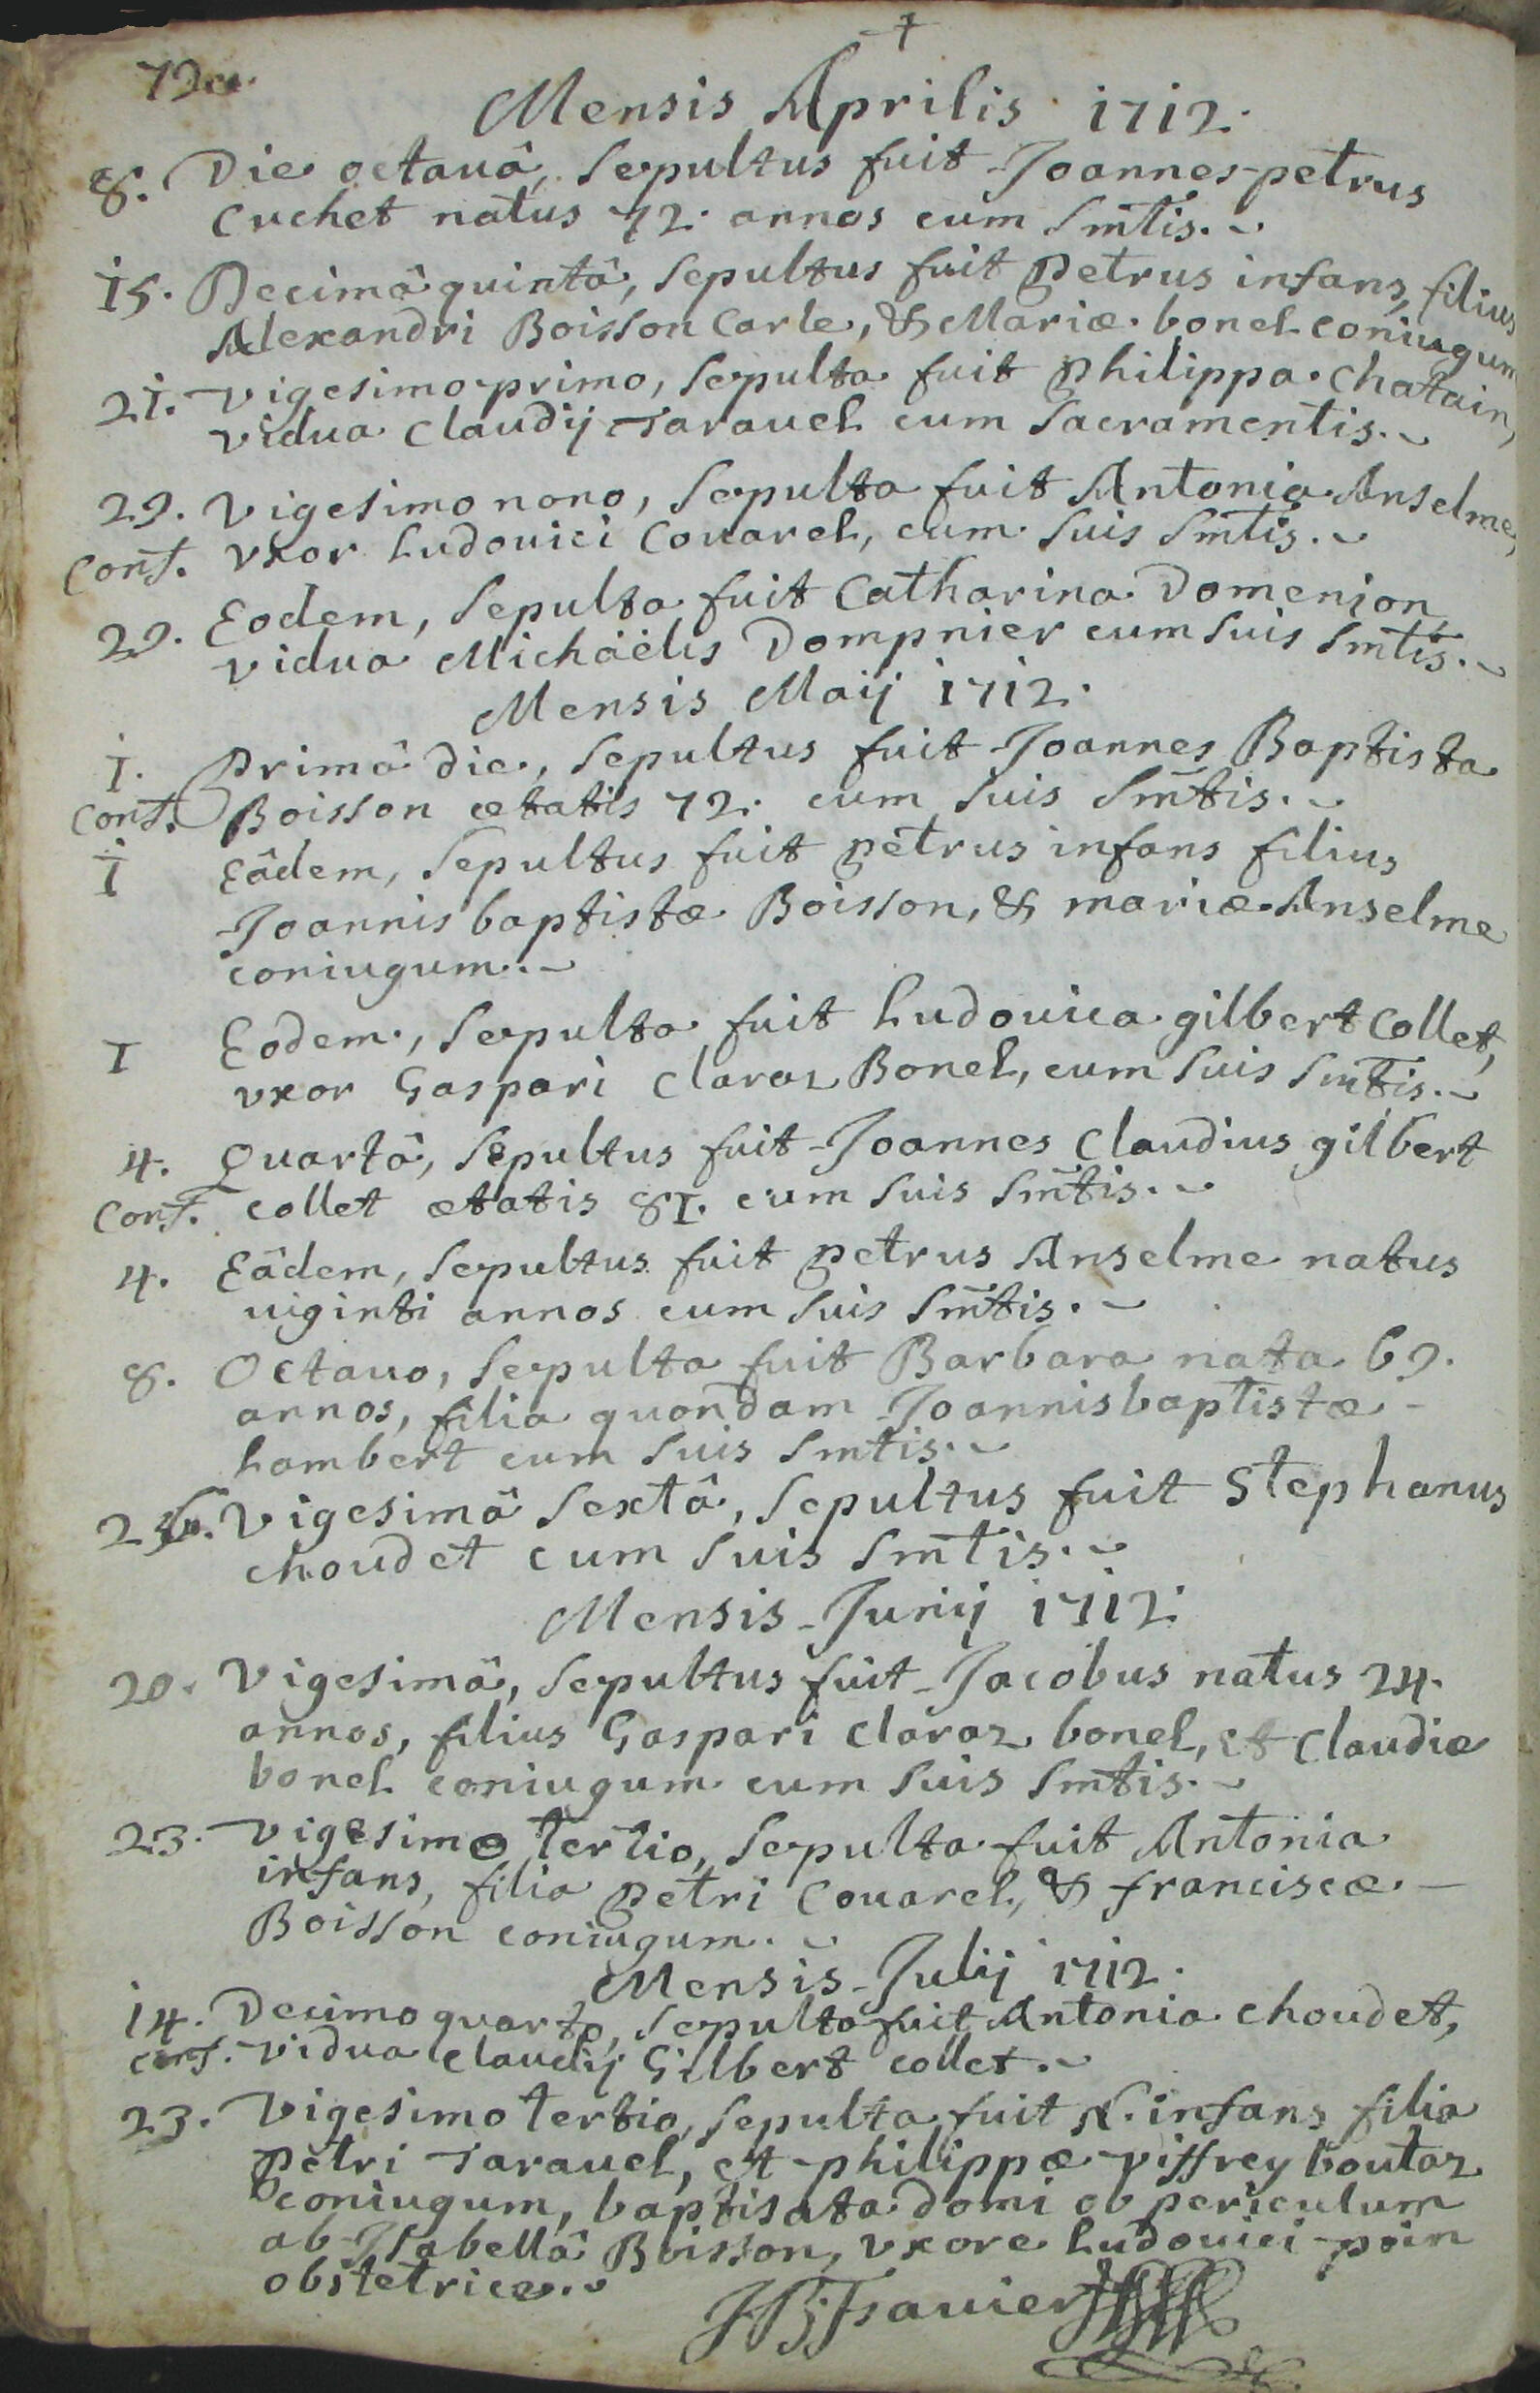 Mensis Aprilis 1712.
8. Die octauâ, sepultus fuit Joannes-petrus
Cuchet natus 72. annos cum Smtis.
15. Decimâ quintâ, sepultus fuit Petrus infans, filius
Alexandri Boisson Carle, & Mariæ bonel coniugum
21. Vigesimo primo, sepulta fuit Philippa Chatain,
vidua Claudij Tarauel cum Sacramentis.
29. Vigesimo nono, sepulta fuit Antonia Anselme,
Conf. Vxor Ludouici Couarel, cum suis Smtis.
29. Eodem, sepulta fuit Catharina Domenjon
vidua Michaëlis Dompnier cum suis Smtis.
Mensis Maij 1712.
1. Primâ die, sepultus fuit Joannes Baptista
Conf. Boisson ætatis 72. cum suis Smtis.
1 Eâdem, sepultus fuit petrus infans filius
Joannis baptistæ Boisson, & mariæ Anselme
coniugum.
1 Eodem, sepulta fuit Ludouica gilbert Collet,
vxor Gaspari Claraz Bonel, cum suis Smtis.
4. Quartâ, sepultus fuit Joannes Claudius gilbert
Conf. collet ætatis 81. cum suis Smtis.
4. Eâdem, sepultus fuit petrus Anselme natus
uiginti annos cum suis Smtis.
8. Octauo, sepulta fuit Barbara nata 69.
annos, filia quondam Joannis baptistæ
Lambert cum suis Smtis.
26. Vigesimâ sextâ, sepultus fuit Stephanus
choudet cum suis Smtis.
Mensis Junij 1712.
20. Vigesimâ, sepultus fuit Jacobus natus 24.
annos, filius Gaspari Claraz bonel, et Claudiæ
bonel coniugum cum suis Smtis.
23. Vigesimo tertio, sepulta fuit Antonia
infans, filia petri Couarel, & franciscæ
Boisson coniugum.
Mensis Julij 1712.
14. Decimo quarto, sepulta fuit Antonia choudet,
conf. vidua Claudij Gilbert collet.
23. Vigesimo tertio, sepulta fuit N. infans filia
Petri Tarauel, et philippæ Viffrey boutaz
coniugum, baptisata domi ob periculum
ab Isabellâ Boisson, vxore Ludouici poin
obstetrice.